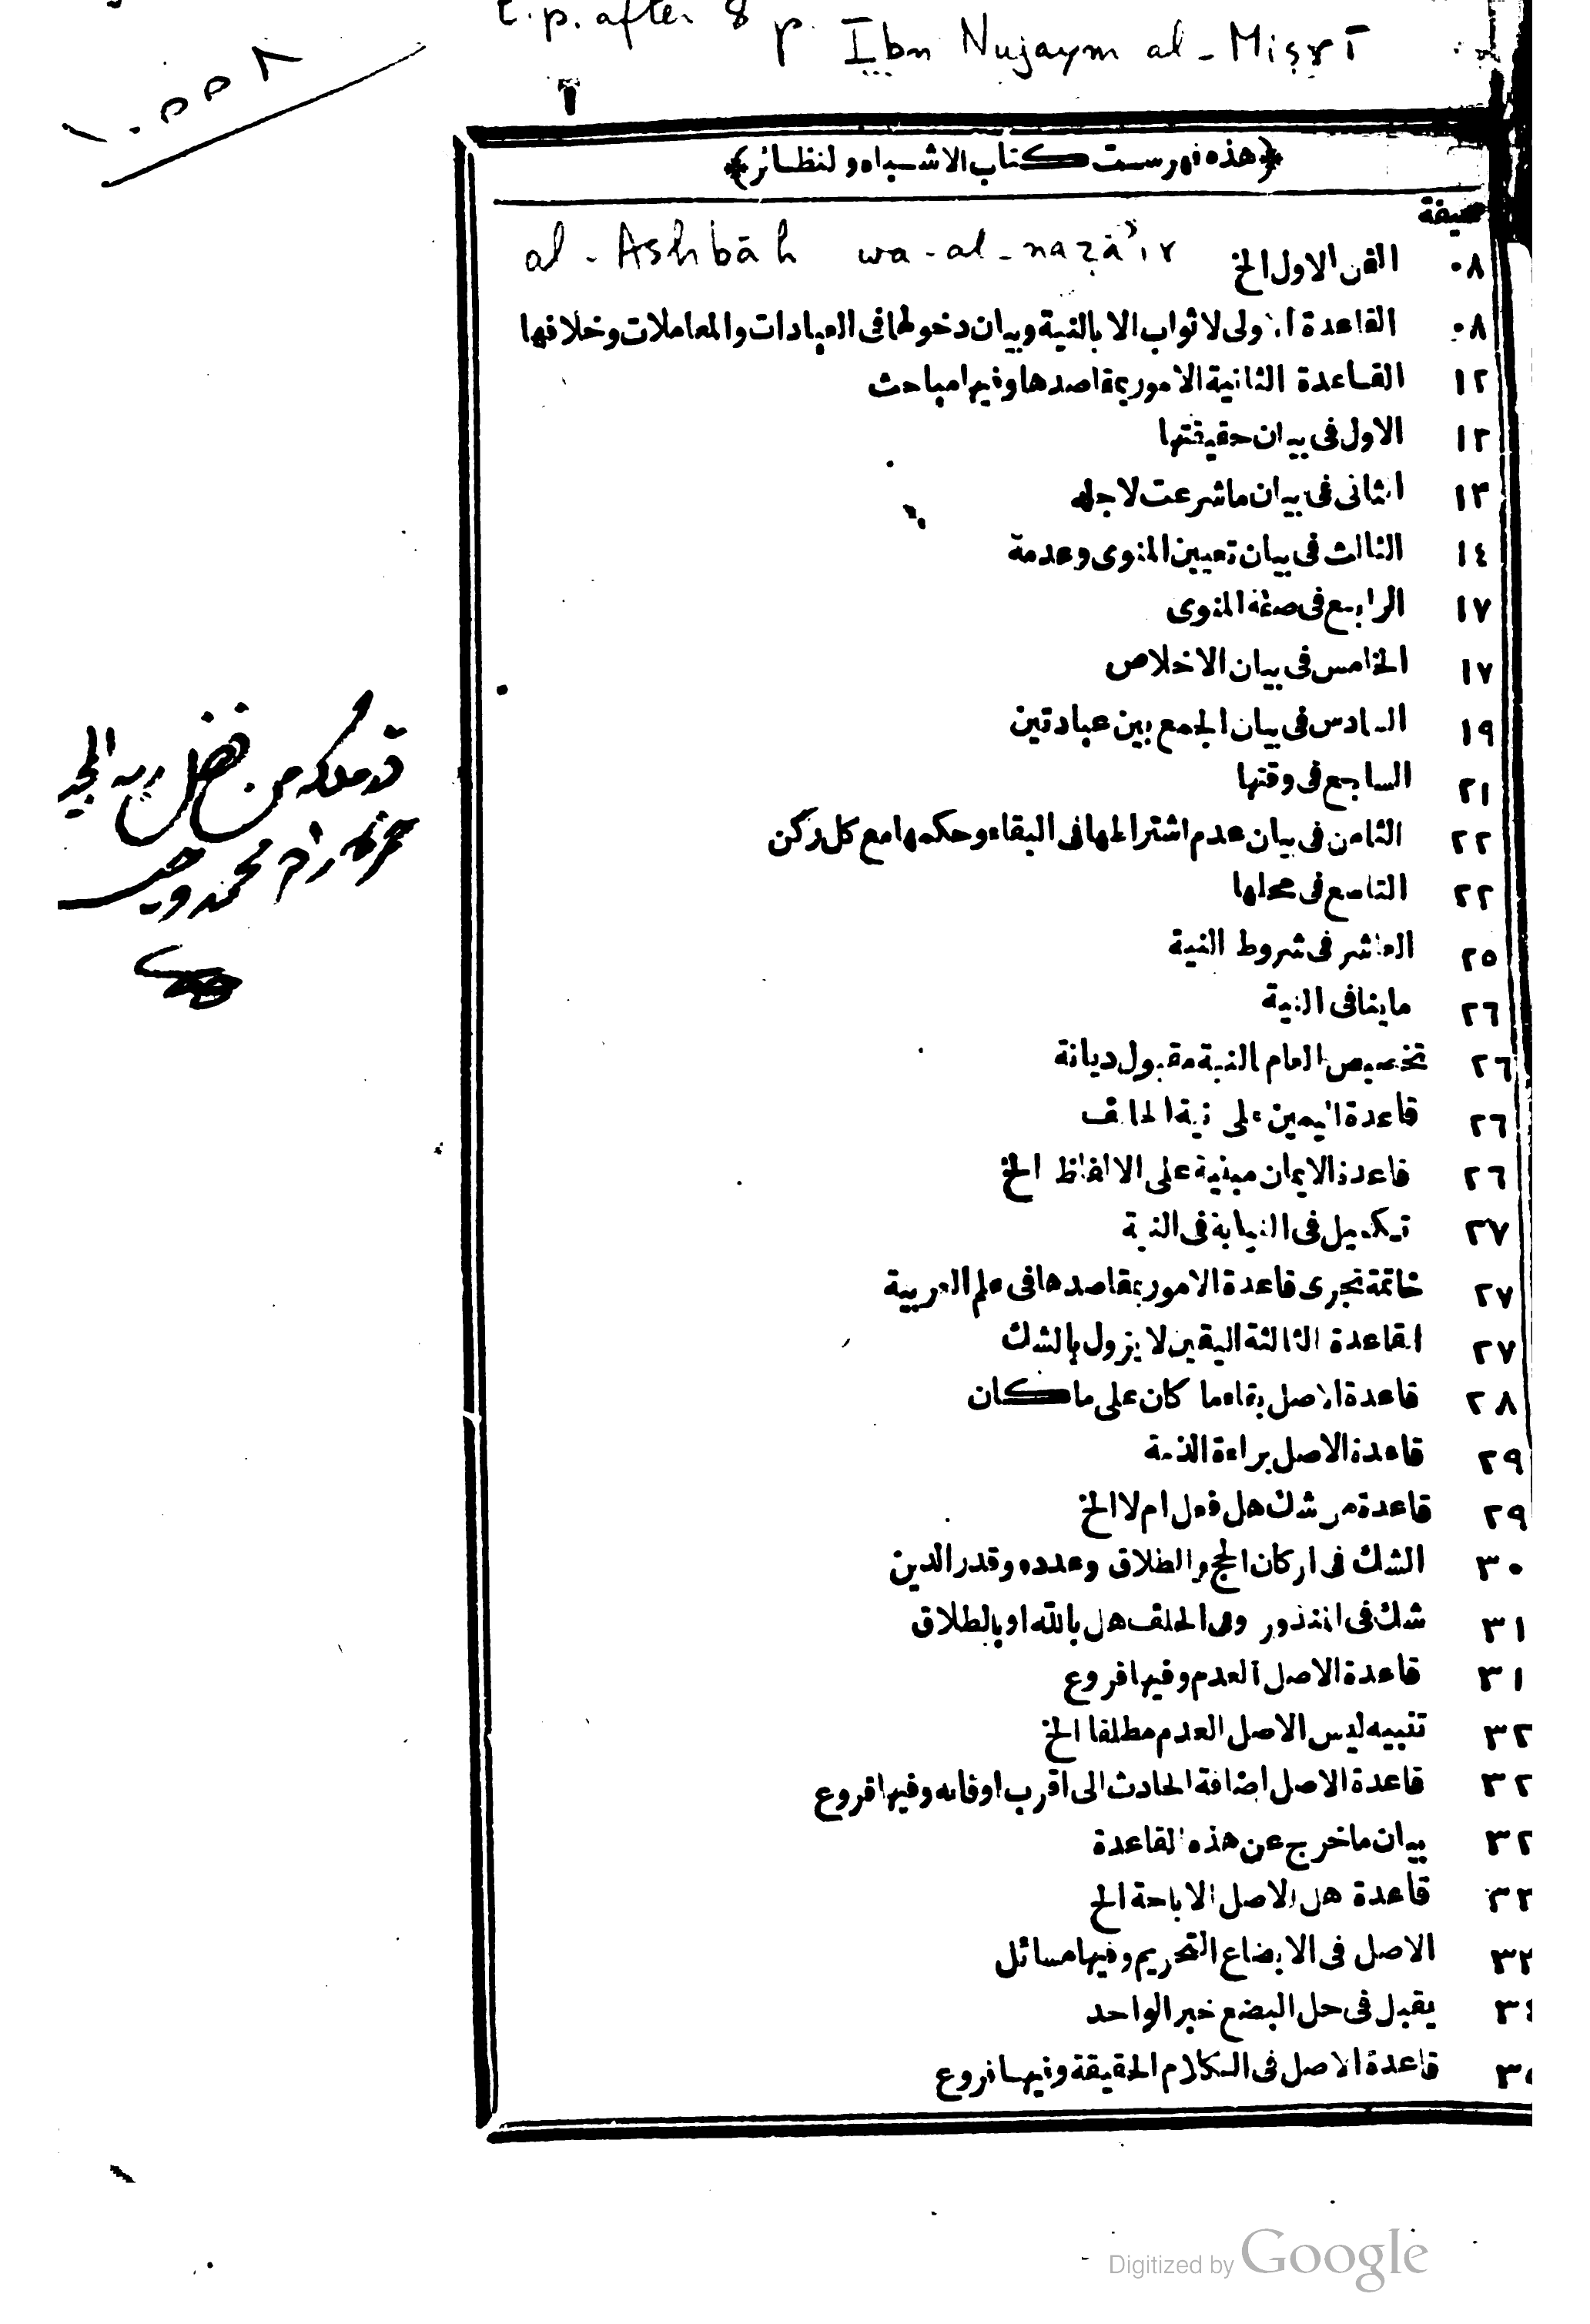 t.p. after 8 p. Ibn Nujaym al-Miṣrī
١٠٥٥٨
﴿هذه فهرست كتاب الاشباه ولنظائر﴾
صحيفة
al-Ashbāh wa-al-naẓā'ir
٠٨ الفن الاول الخ
٠٨ القاعدة الاولى لا ثواب الا بالنية وبيان دخولها فى العبادات والمعاملات وخلافها
١٢ القاعدة الثانية الامور بمقاصدها وفيها مباحث
١٢ الاول فى بيان حقيقتها
١٣ الثانى فى بيان ما شرعت لاجله
١٤ الثالث فى بيان تعيين المنوى وعدمة
١٧ الرابع فى صفة المنوى
١٧ الخامس فى بيان الاخلاص
١٩ السادس فى بيان الجمع بين عبادتين
٢١ السابع فى وقتها
٢٢ الثامن فى بيان عدم اشتراطها فى البقاء وحكمها مع كل ركن
٢٢ التاسع فى محلها
٢٥ العاشر فى شروط النية
٢٦ ما ينافى النية
٢٦ تخصيص العام النية مقبول ديانة
٢٦ قاعدة اليمين على نية الحالف
٢٦ قاعدة الايمان مبنية على الالفاظ الخ
٢٧ تكميل فى النيابة فى النية
٢٧ خاتمة تجرى قاعدة الامور بمقاصدها فى علم العربية
٢٧ القاعدة الثالثة اليقين لا يزول بالشك
٢٨ قاعدة الاصل بقاء ما كان على ما كان
٢٩ قاعدة الاصل براءة الذمة
٢٩ قاعدة من شك هل فعل ام لا الخ
٣٠ الشك فى اركان الحج والطلاق وعدده وقدر الدين
٣١ شك فى المنذور وفى الحلف هل بالله او بالطلاق
٣١ قاعدة الاصل العدم وفيها فروع
٣٢ تنبيه ليس الاصل العدم مطلقا الخ
٣٢ قاعدة الاصل اضافة الحادث الى اقرب اوقاته وفيها فروع
٣٢ بيان ما خرج عن هذه القاعدة
٣٣ قاعدة هل الاصل الاباحة الخ
٣٣ الاصل فى الابضاع التحريم وفيها مسائل
٣٤ يقبل فى حل البضع خبر الواحد
قاعدة الاصل فى الكلام الحقيقة وفيها فروع
من فضل ربه
محمد
Digitized by Google